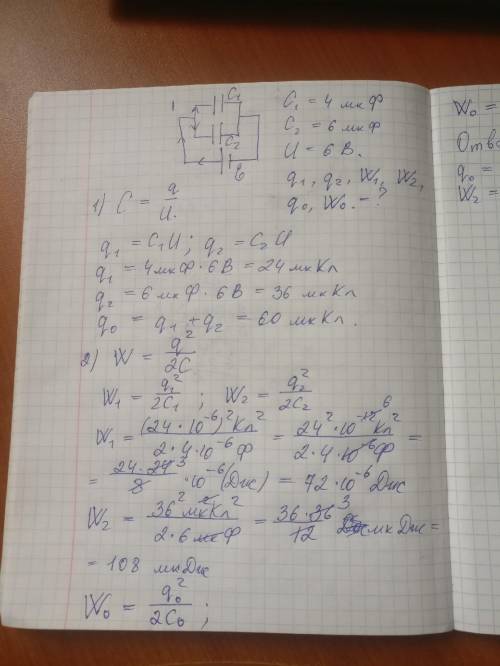 C₁
C₂
C₁ = 4 мкФ
C₂ = 6 мкФ
U = 6 В.
q₁, q₂, W₁, W₂,
q₀, W₀ - ?
1) C = q/U.
q₁ = C₁U; q₂ = C₂U
q₁ = 4мкФ · 6В = 24 мкКл
q₂ = 6 мкФ · 6В = 36 мкКл
q₀ = q₁ + q₂ = 60 мкКл.
2) W = q²/2C
W₁ = q₁²/2C₁ ; W₂ = q₂²/2C₂
W₁ = (24·10⁻⁶)² Кл²/2·4·10⁻⁶Ф = 24²·10⁻¹² ⁶ Кл²/2·4·10⁻⁶Ф =
= 24·24 ³/8 · 10⁻⁶ (Дж) = 72·10⁻⁶ Дж
W₂ = 36² мкКл²/2·6 мкФ = 36·36 ³/12 мкДж =
= 108 мкДж
W₀ = q₀²/2C₀ ;
W₀ =
Отв
q₀ =
W₂ =